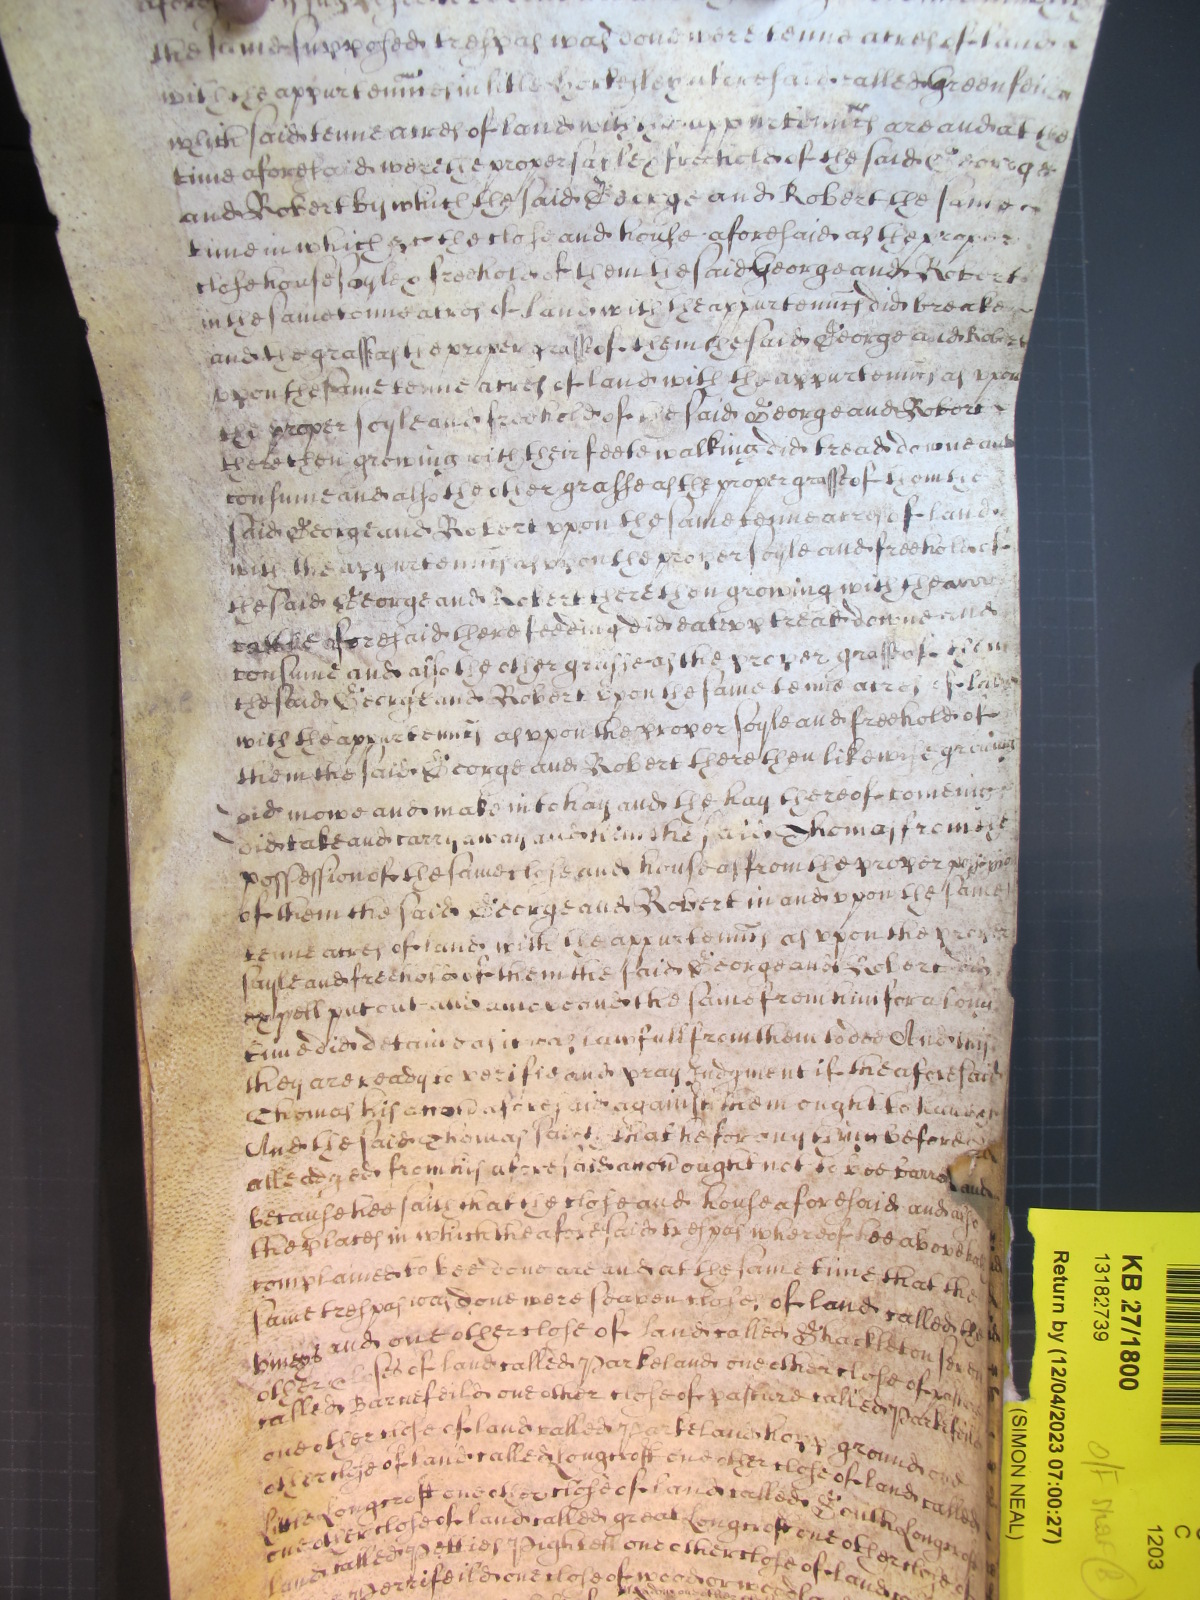 the same supposed trespas was done were tenne acres of land
with the appurtennces in little Horkesley aforesaid called Greenfeild
which said tenne acres of land with the appurtennces are and at the
time aforesaid were the proper soyle & freehold of the said George
and Robert by which the said George and Robert the same
time in which &c the close and house aforesaid as the proper
close house soyle & freehold of them the said George and Robert
in the same tenne acres of land with the appurtennces did breake
and the grasse as the proper grasse of them the said George and Robert
upon the same tenne acres of land with the appurtennces as upon
the proper soyle and freehold of the said George and Robert
there then growing with their feete walking did tread downe and
consume and also the other grasse as the proper grasse of them the
said George and Robert upon the same tenne acres of land
with the appurtennces as upon the proper soyle and freehold of
the said George and Robert there then growing with the
cattle aforesaid there feeding did eat upp tread downe and
consume and also the other grasse as the proper grasse of them
the said George and Robert upon the same tenne acres of land
with the appurtennces as upon the proper soyle and freehold of
them the said George and Robert there then likewise growing
did mowe and make into hay and the hay thereof comeing
did take and carry away and him the said Thomas from the
possession of the same close and house as from the proper possession
of them the said George and Robert in and upon the same
tenne acres of land with the appurtennces as upon the proper
soyle and freehold of them the said George and Robert did
expell put out and amove and the same from him for a long
time did detaine as it was lawfull from them to doe And this
they are ready to verifie and pray Judgment if the aforesaid
Thomas his accon aforesaid against them ought to have &c
And the said Thomas saith that he for any thing before
alledged from his aforesaid accon ought not to bee barred and
because hee saith that the close and house aforesaid and also
the places in which the aforesaid trespas whereof hee above hath
complained to bee done are and at the same time that the
same trespas was done were seaven closes of land called the
and one other close of land called Shackleton seven
other closes of land called Parkeland one other close of pasture
called Barnefeild one other close of pasture called Parkfeild
one other close of land called Parkeland hopp ground one
other close of land called Longcroft one other close of land called
little Longcroft one other close of land called South Longcroft
one other close of land called great Longcroft one other close of
land called Petties Pightell one other close of land
Merrifeild one close of wood or
KB 27/1800
13182739
Return by (12/04/2023 07:00:27)
(SIMON NEAL)
1203
C